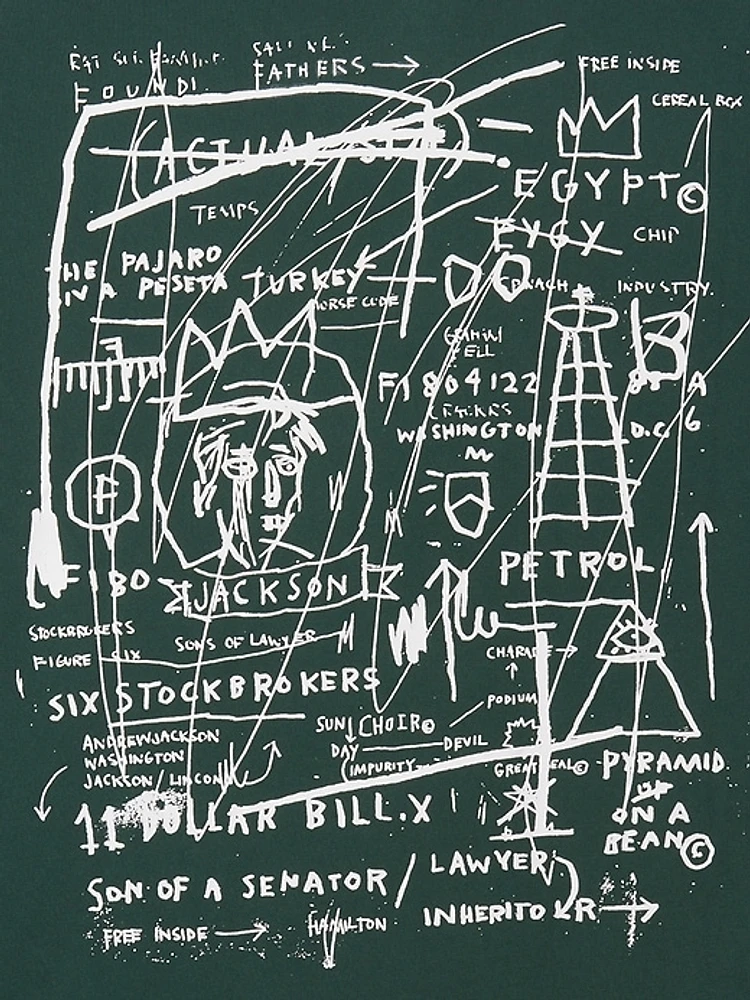 FOUNDI
FATHERS
FREE INSIDE
CEREAL BOX
(ACTUAL
EGYPT©
TEMPS
EYGY
CHIP
THE PAJARO
IN A PESETA
TURKEY
INDUSTRY.
MORSE CODE
F1804122
A
6
WASHINGTON
D.C.
F
F180
JACKSON
PETROL
STOCKBROKERS
FIGURE SIX
SONS OF LAWYER
CHARADE
SIX STOCKBROKERS
PODIUM
ANDREW JACKSON
WASHINGTON
JACKSON/LINCON
SUN CHOIR©
DAY
DEVIL
(IMPURITY
GREAT SEAL©
PYRAMID
UP
ON A
BEAN©
11 DOLLAR BILL.X
SON OF A SENATOR / LAWYER
INHERITOR
FREE INSIDE
HAMILTON